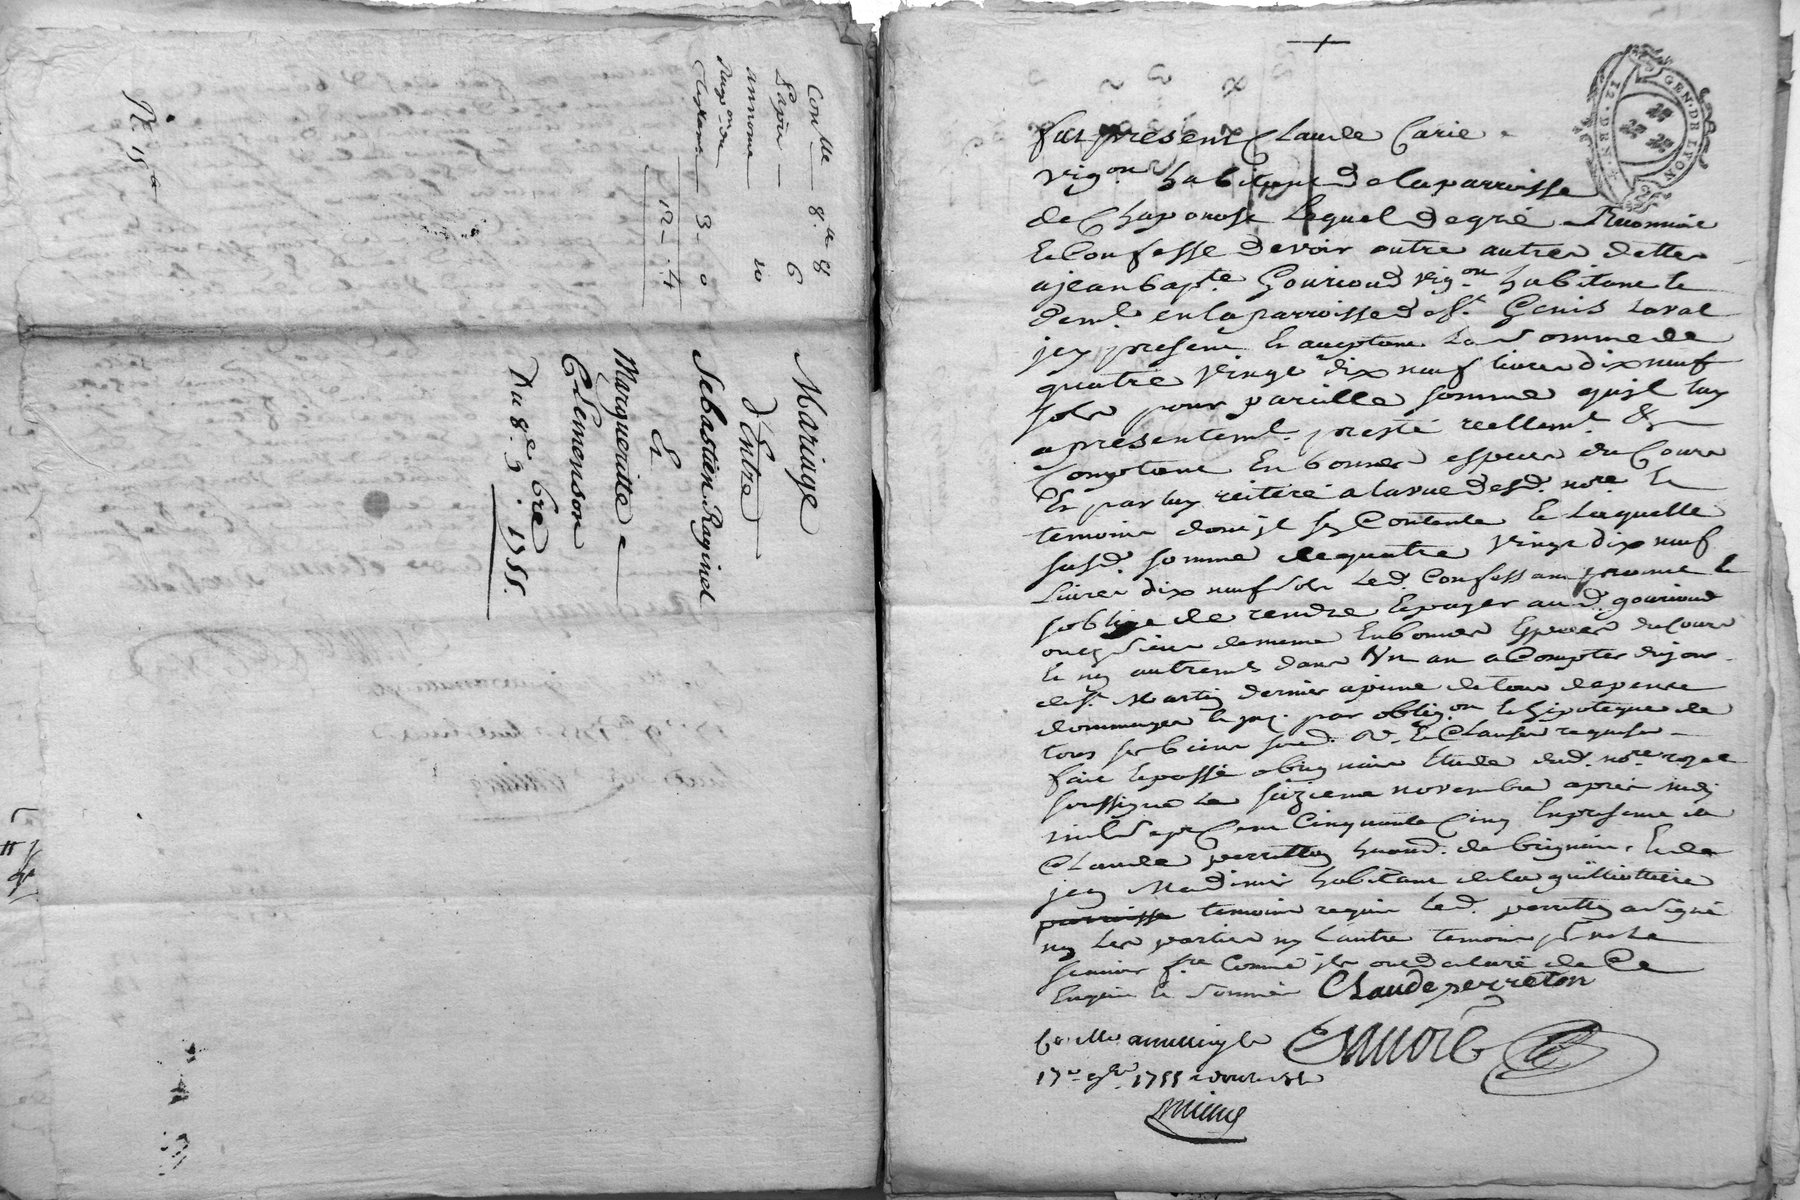 Con.lle 8.tt 8
Papier 6
annonne 10
3 - 0
12 - 4
N.
Mariage
D'Entre
Sebastien Raginel
Et
Margueritte
Clemenson
Du 8.e 9.bre 1755.
GEN. DE LYON
12. DEN.
fut présent Claude Carie
vig.on habitant de la parroisse
de Chaponost lequel de gré a Reconnû
Et Confessé devoir outre autres dettes
a jean bapt.e Gourioud vig.on habitant et
dem.t en la parroisse de S.t Genis Laval
jcy present Et acceptant La somme de
quatre vingt dix neuf livres dix neuf
sols pour pareille somme qu'jl luy
a presentem.t presté reellem.t &
Comptant En bonnes especes du Cours
Et par luy retiré a la vue desd. no.re Et
temoins dont jl se Contente Et Laquelle
susd. somme de quatre vingt dix neuf
Livres dix neuf sols Led. Confessant promet Et
s'oblige de rendre Et payer aud. gourioud
ou es siens de meme En bonnes Especes du Cours
Et non autrem.t dans Un an a Compter du jour
de S.t Martin dernier a peine de tous depens
dommages Et jnt. par oblig.on Et hipoteque de
tous ses biens soum. Et Clauses requises
fait Et passé a brignais Etude dud. no.re royal
soussigné Le seizieme novembre après midy
mil sept Cent Cinquante Cinq En presence de
Claude perretton de brignais, Et de
jean habitant de la guilliottiere
parroisse temoins requis Led. perretton a signé
non Les parties ny L'autre temoin p.r ne Le
scavoir f.re Comme jls ont declaré de Ce
Enquis Et sommés Claude perreton
Con.lle a le
17.e 9.bre 1755